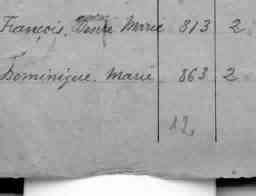 François, Desire Marie 813 2
Dominique Marie 863 2
12,